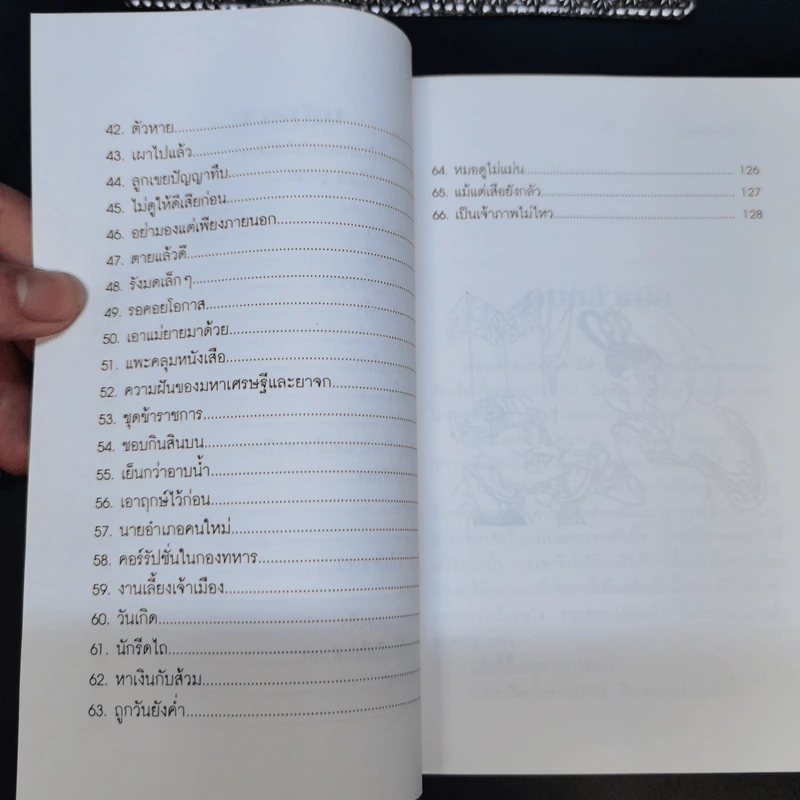 42. ตัวหาย
43. เผาไปแล้ว
44. ลูกเขยปัญญาทึบ
45. ไม่ดูให้ดีเสียก่อน
46. อย่ามองแต่เพียงภายนอก
47. ตายแล้วดี
48. รังมดเล็กๆ
49. รอคอยโอกาส
50. เอาแม่ยายมาด้วย
51. แพะคลุมหนังเสือ
52. ความฝันของมหาเศรษฐีและยาจก
53. ชุดข้าราชการ
54. ชอบกินสินบน
55. เย็นกว่าอาบน้ำ
56. เอาฤกษ์ไว้ก่อน
57. นายอำเภอคนใหม่
58. คอร์รัปชั่นในกองทหาร
59. งานเลี้ยงเจ้าเมือง
60. วันเกิด
61. นักรีดไถ
62. หาเงินกับส้วม
63. ถูกวันยังค่ำ
64. หมอดูไม่แม่น 126
65. แม้แต่เสือยังกลัว 127
66. เป็นเจ้าภาพไม่ไหว 128